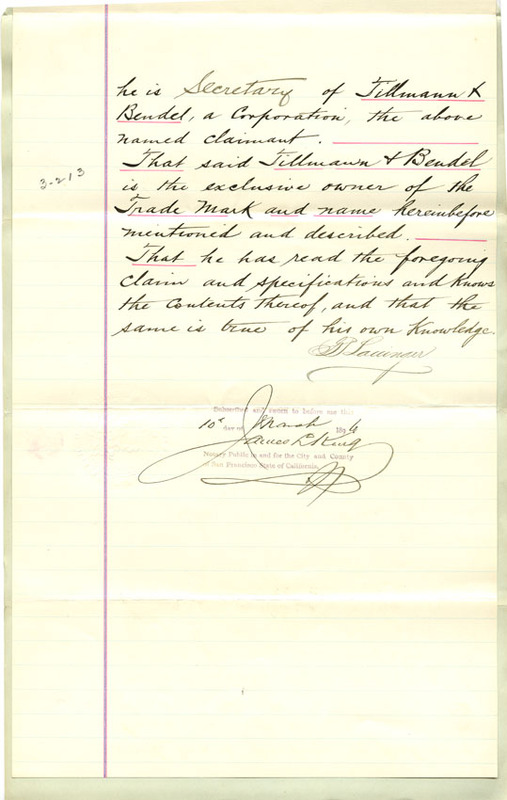 he is Secretary of Tillmann &
Bendel, a Corporation, the above
named claimant.
That said Tillmann & Bendel
3-213
is the exclusive owner of the
Trade Mark and name hereinbefore
mentioned and described.
That he has read the foregoing
claim and specifications and knows
the Contents thereof, and that the
same is true of his own Knowledge.
Subscribed and sworn to before me this
10th day of March 1896
James L. King
Notary Public in and for the City and County
of San Francisco State of California.